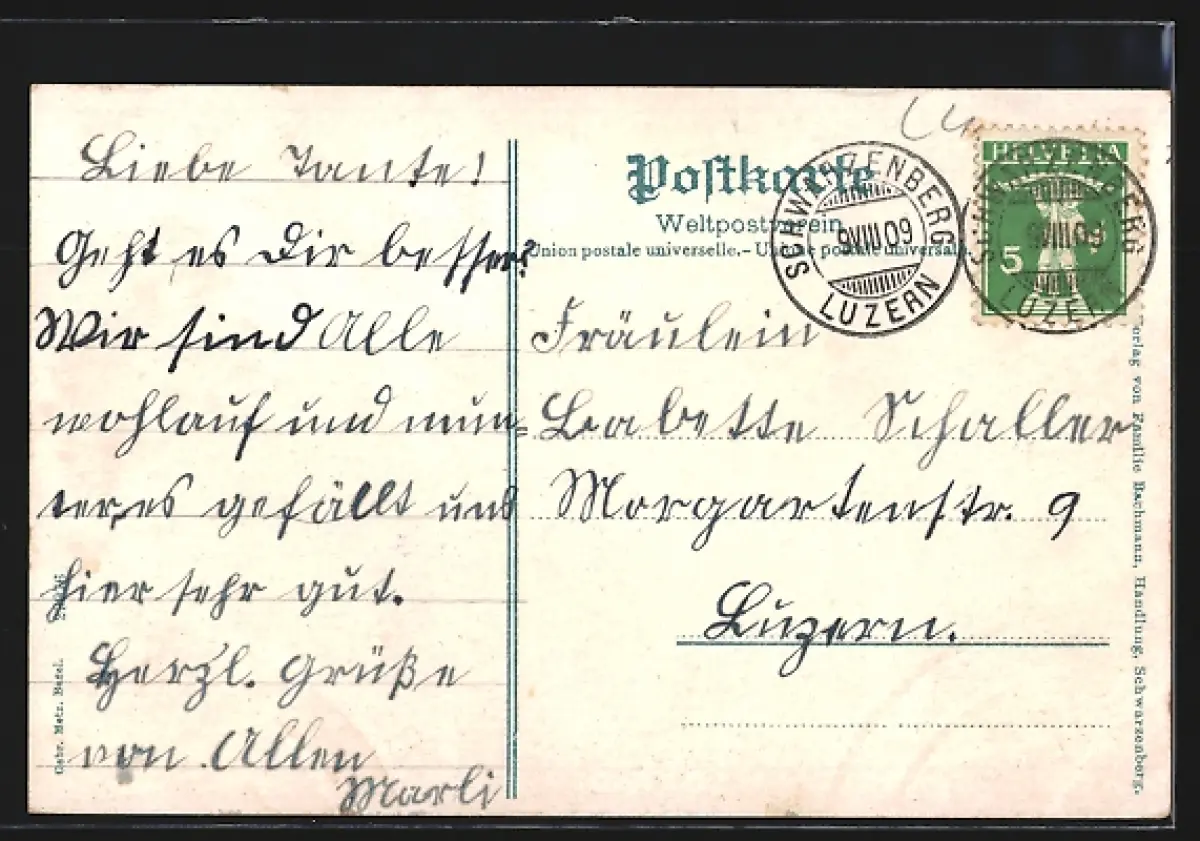 Liebe Tante!
Geht es Dir besser?
Wir sind Alle
wohlauf und mun-
ter, es gefällt uns
hier sehr gut.
Herzl. Grüße
von Allen
Marli
Gebr. Metz, Basel.
Postkarte
Weltpostverein
Union postale universelle. – Unione postale universale.
SCHWARZENBERG
9 VIII 09
LUZERN
HELVETIA
5
SCHWARZENBERG
9 VIII 09
LUZERN
Fräulein
Babette Schaller
Morgartenstr. 9
Luzern.
Verlag von Familie Bachmann, Handlung, Schwarzenberg.